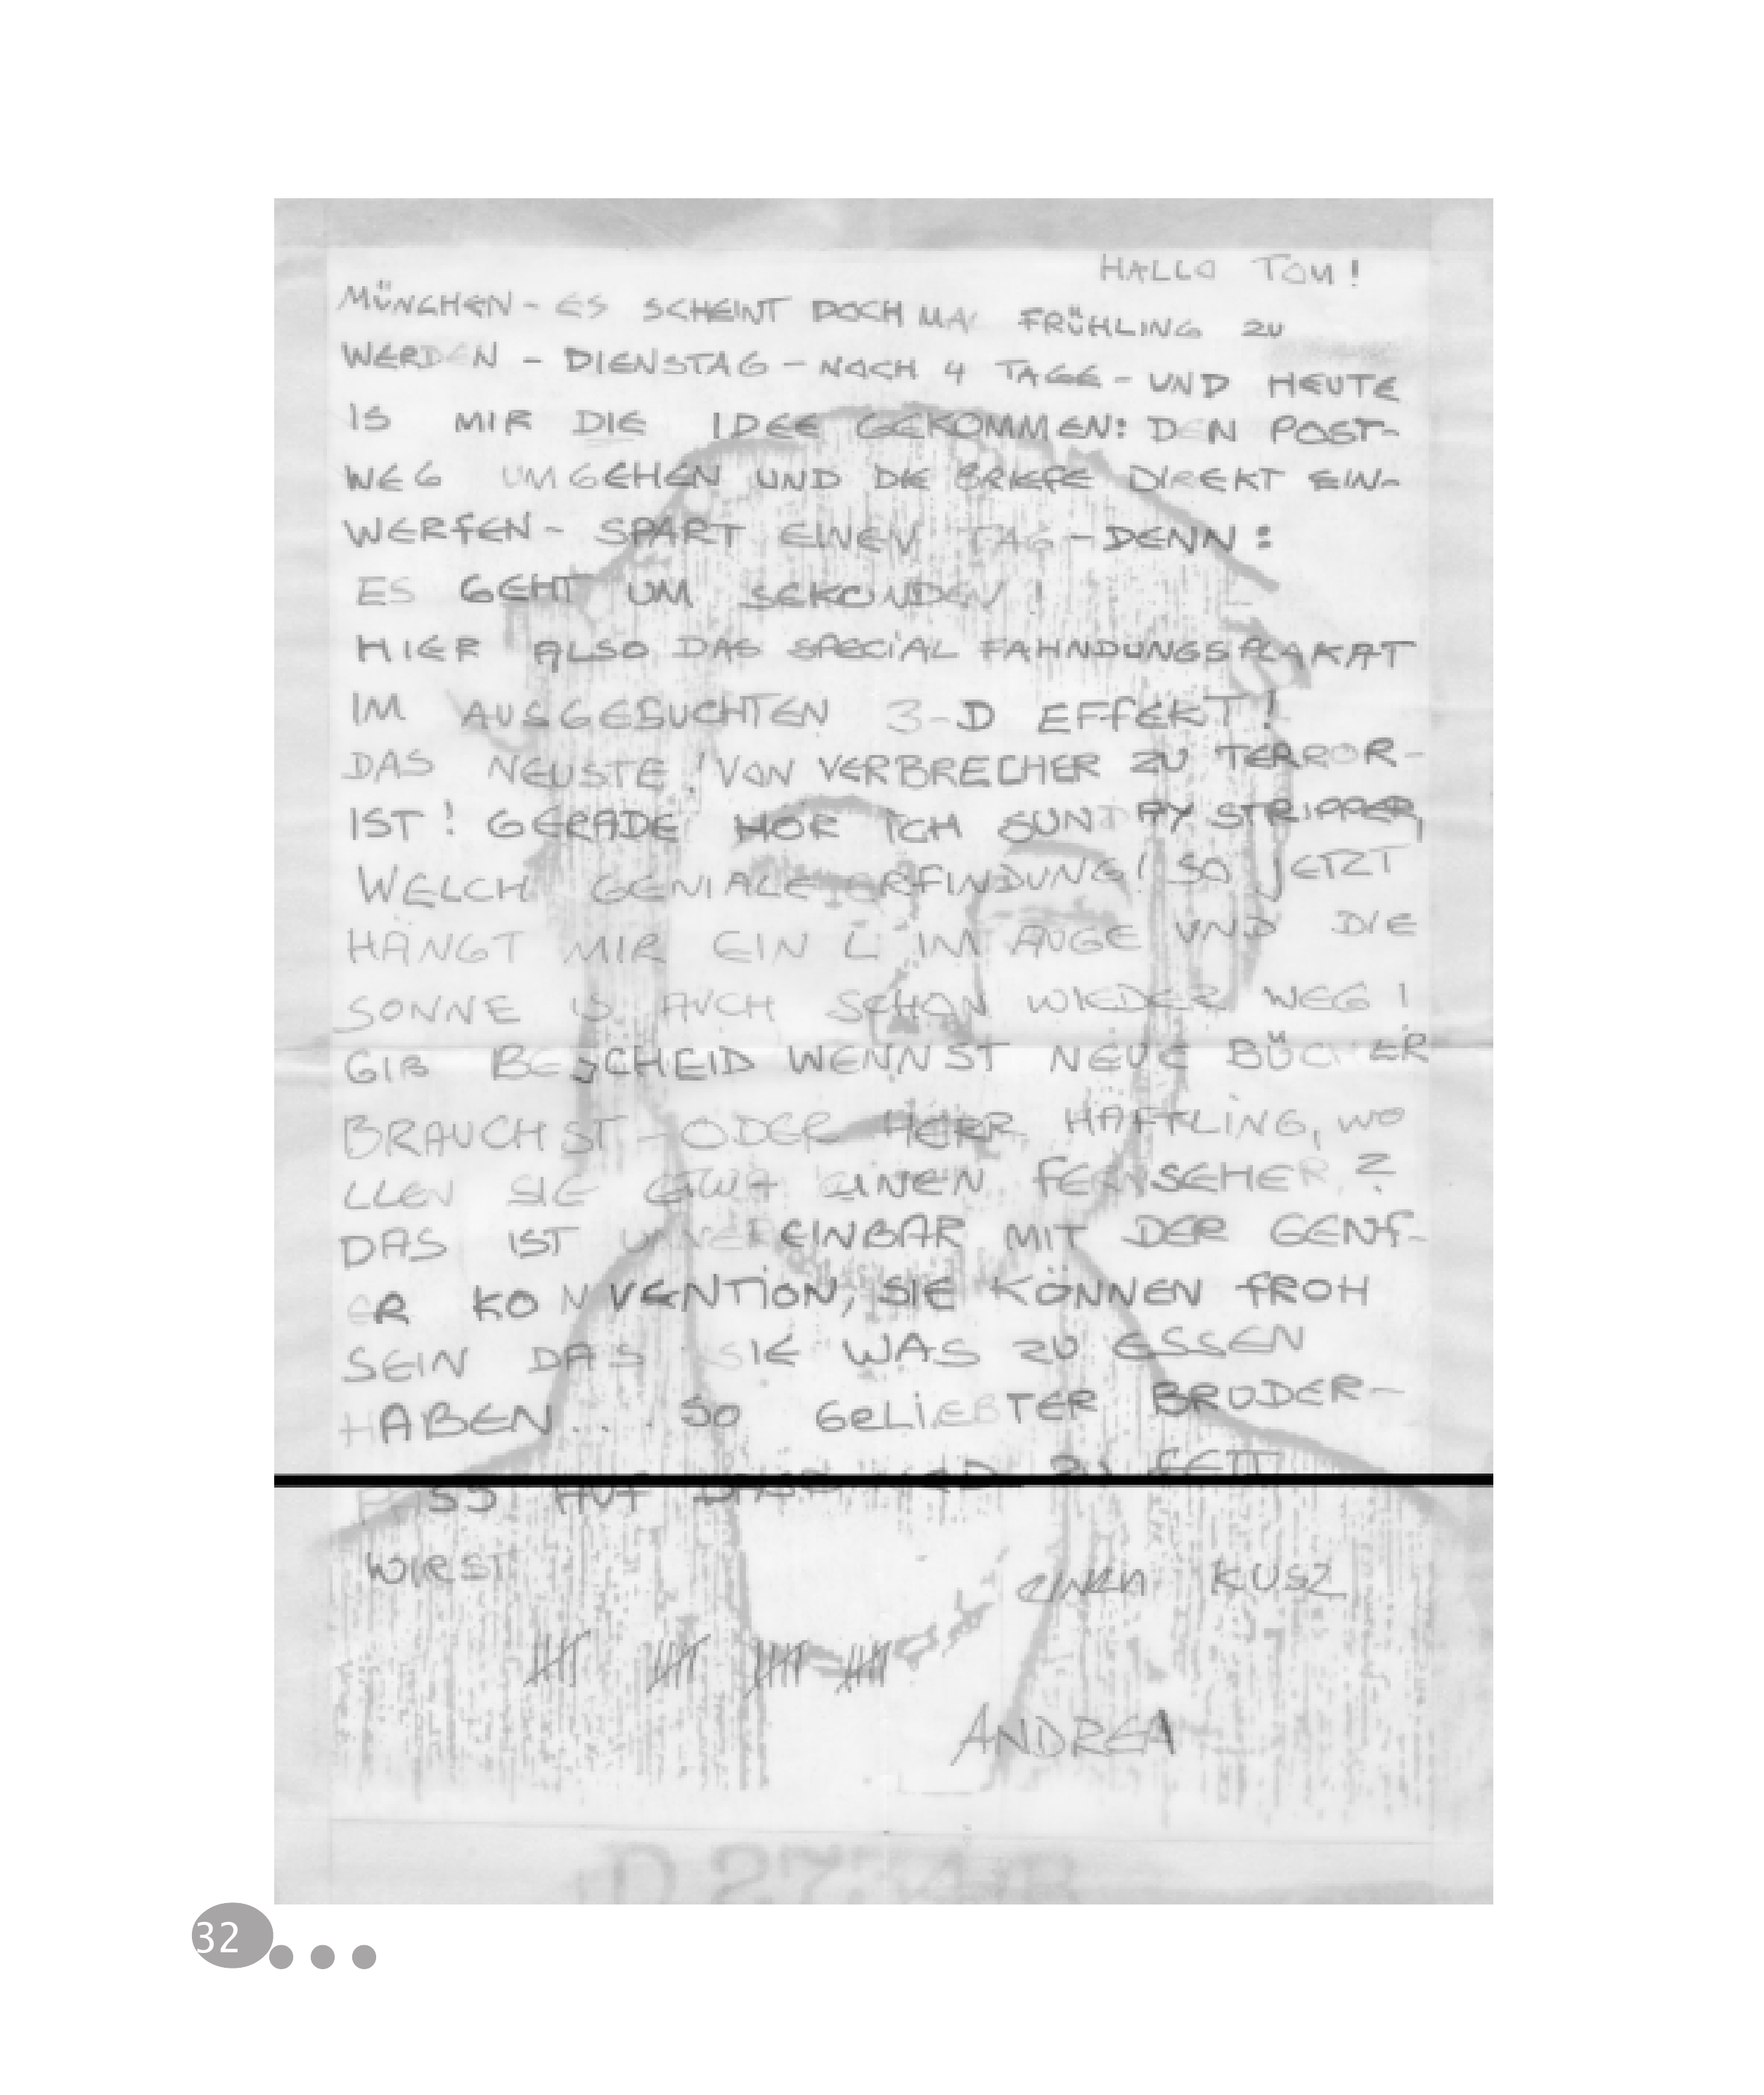 HALLO TOM!
MÜNCHEN - ES SCHEINT DOCH MAL FRÜHLING ZU
WERDEN - DIENSTAG - NOCH 4 TAGE - UND HEUTE
IS MIR DIE IDEE GEKOMMEN: DEN POST-
WEG UMGEHEN UND DIE BRIEFE DIREKT EIN-
WERFEN - SPART EINEN TAG - DENN:
ES GEHT UM SEKUNDEN!
HIER ALSO DAS SPECIAL FAHNDUNGSPLAKAT
IM AUSGESUCHTEN 3-D EFFEKT!
DAS NEUSTE! VON VERBRECHER ZU TERROR-
IST! GERADE HÖR ICH SUNDAY STRIPPER,
WELCH GENIALE ERFINDUNG! SO JETZT
HÄNGT MIR EIN L IM AUGE UND DIE
SONNE IS AUCH SCHON WIEDER WEG!
GIB BESCHEID WENNST NEUE BÜCHER
BRAUCHST - ODER HERR HÄFTLING, WO
LLEN SIE ETWA EINEN FERNSEHER?
DAS IST UNVEREINBAR MIT DER GENF-
ER KONVENTION, SIE KÖNNEN FROH
SEIN DAS SIE WAS ZU ESSEN
HABEN... SO GELIEBTER BRUDER-
PASS AUF DASD NED ZU FETT
WIRST
EINEN KUSZ
ANDREA
D 273
32